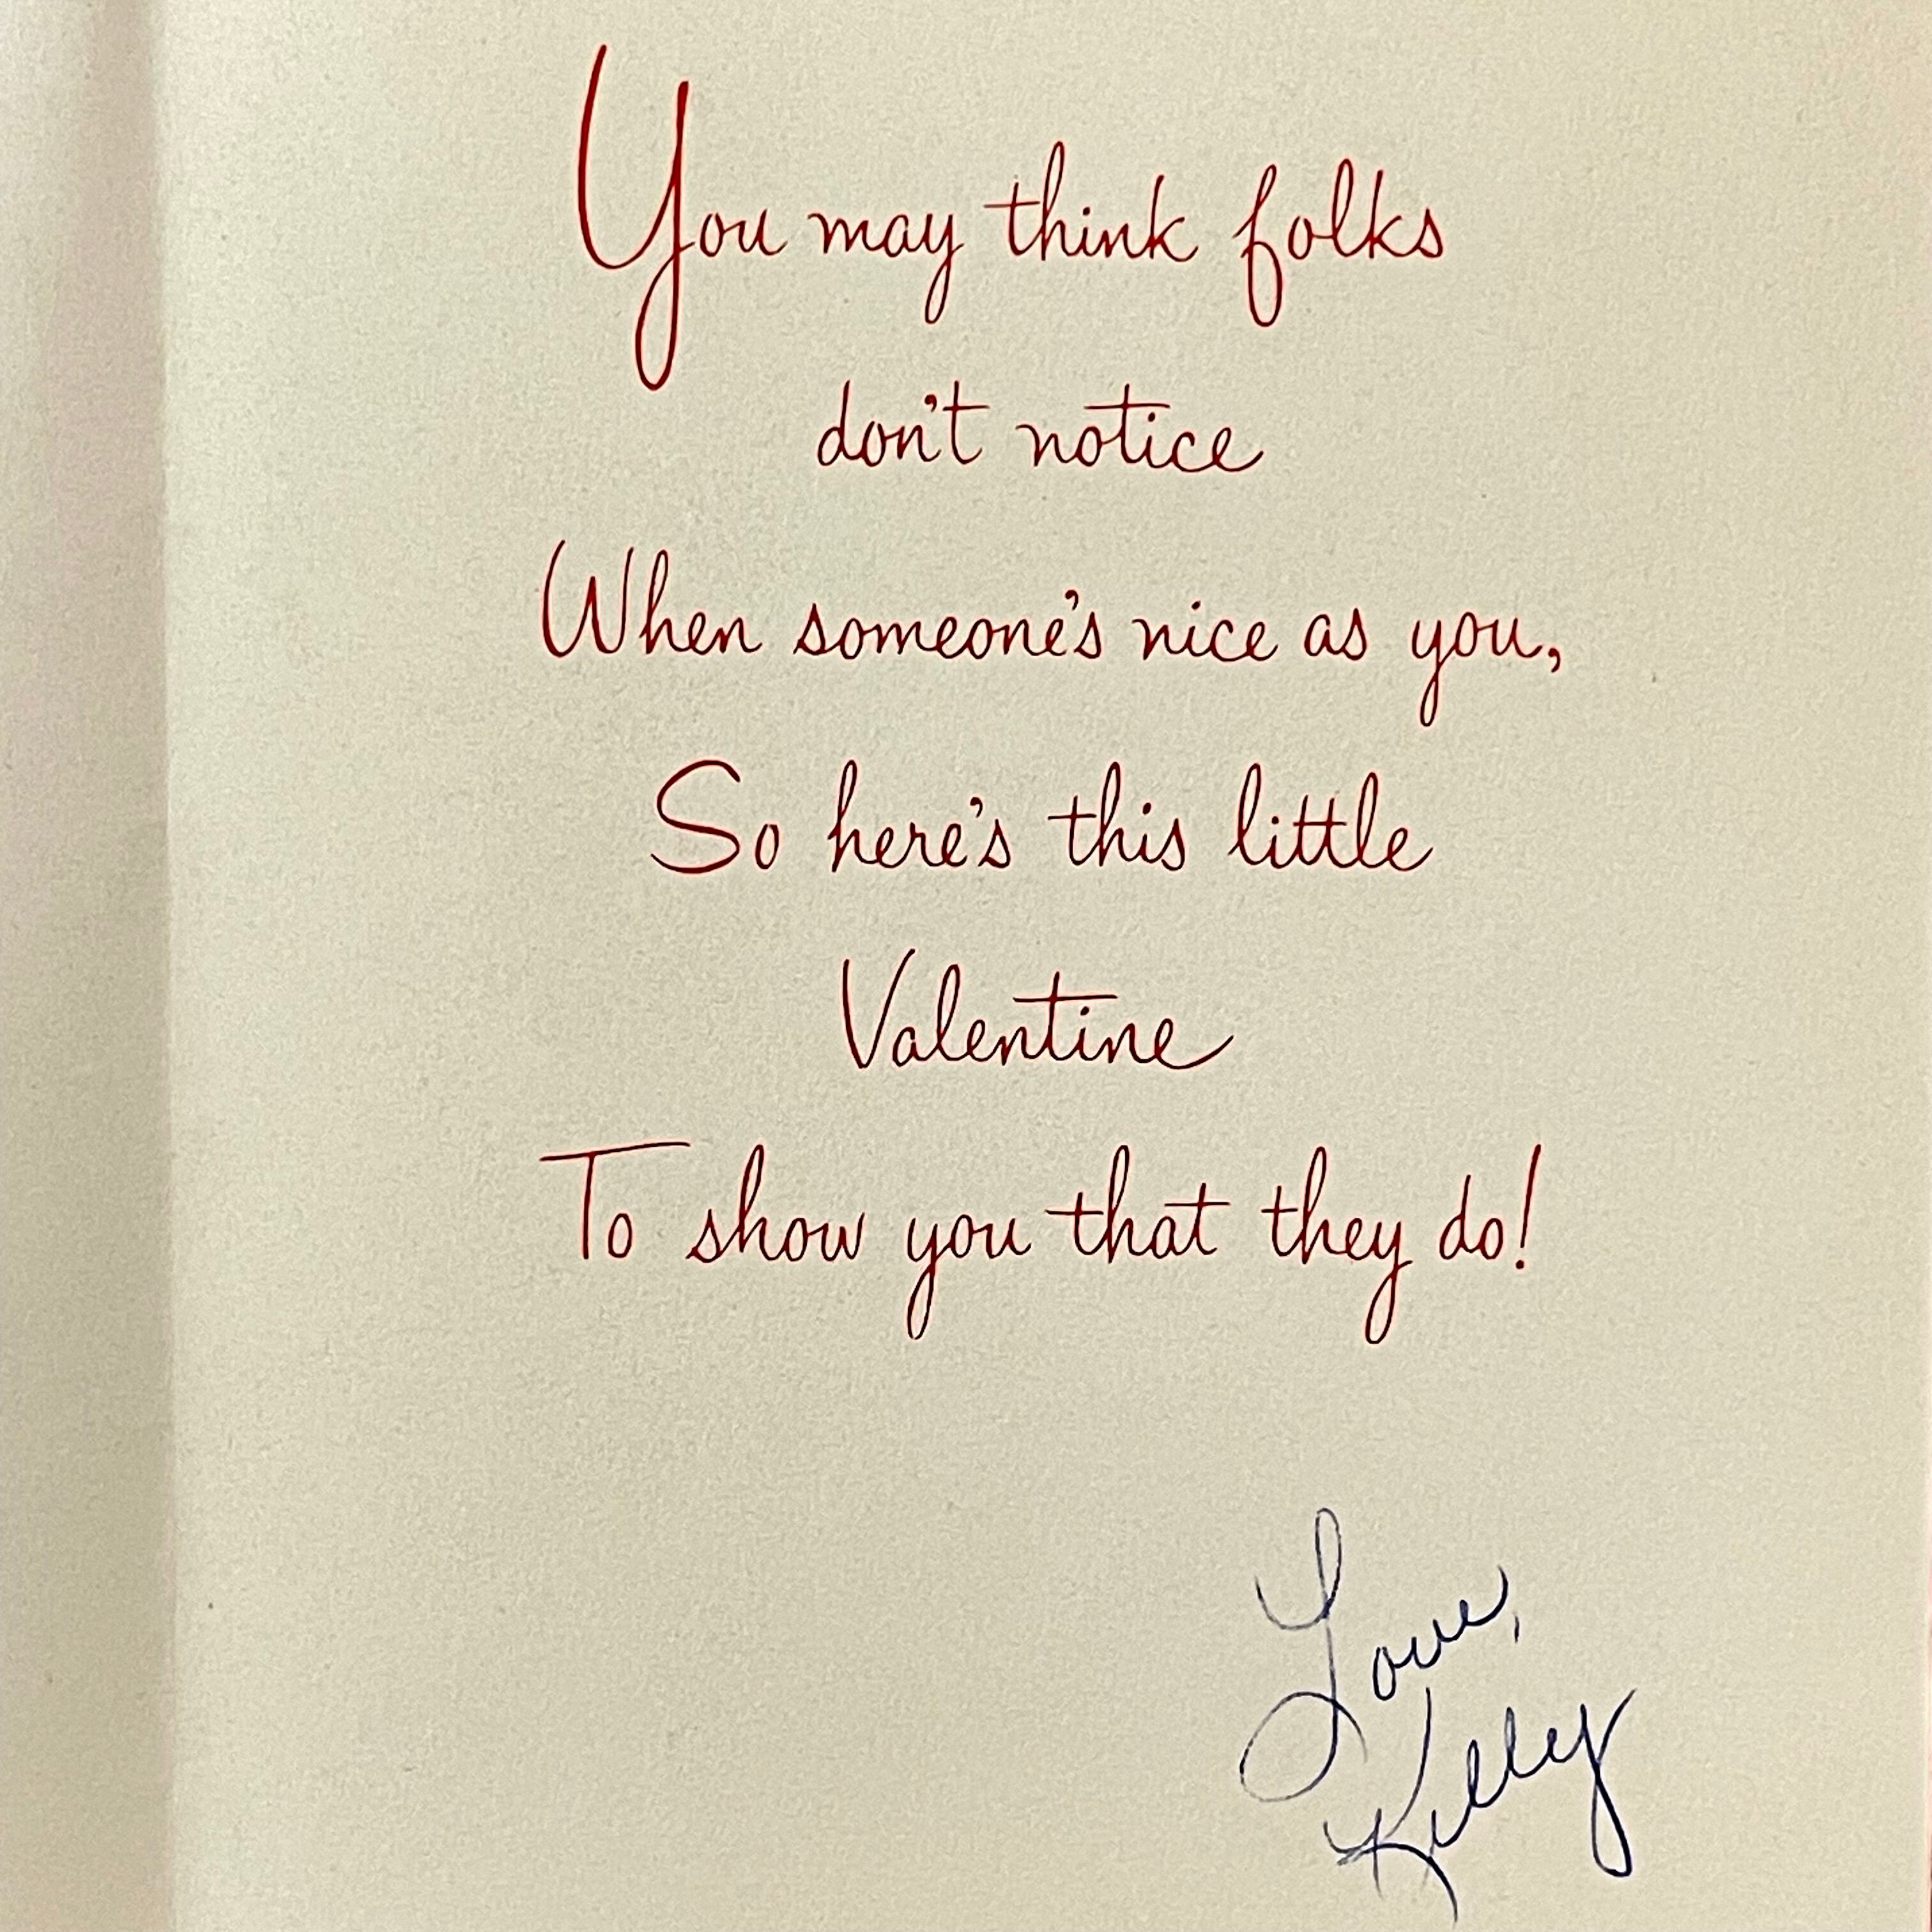 You may think folks
don't notice
When someone's nice as you,
So here's this little
Valentine
To show you that they do!
Love,
Kelly